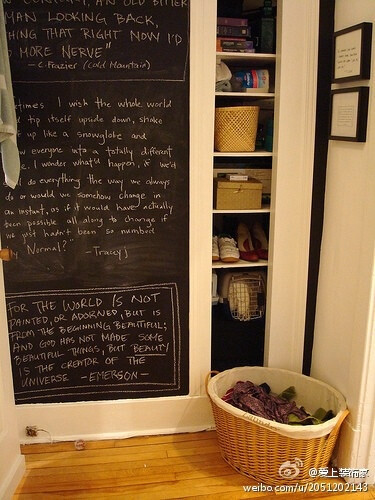 AN OLD BITTER
MAN LOOKING BACK,
THING THAT RIGHT NOW I'D
MORE NERVE"
-C. Frazier (Cold Mountain)
I wish the whole world
tip itself upside down, shake
up like a snowglobe and
everyone into a totally different
I wonder what'd happen, if we'd
do everything the way we always
do or would we somehow change in
an instant, as if it would have actually
been possible all along to change if
we just hadn't been so numbed
Normal?" -Tracey J
FOR THE WORLD IS NOT
PAINTED, OR ADORNED, BUT IS
FROM THE BEGINNING BEAUTIFUL;
AND GOD HAS NOT MADE SOME
BEAUTIFUL THINGS, BUT BEAUTY
IS THE CREATOR OF THE
UNIVERSE -EMERSON-
@爱上装饰家
weibo.com/u/2051202143